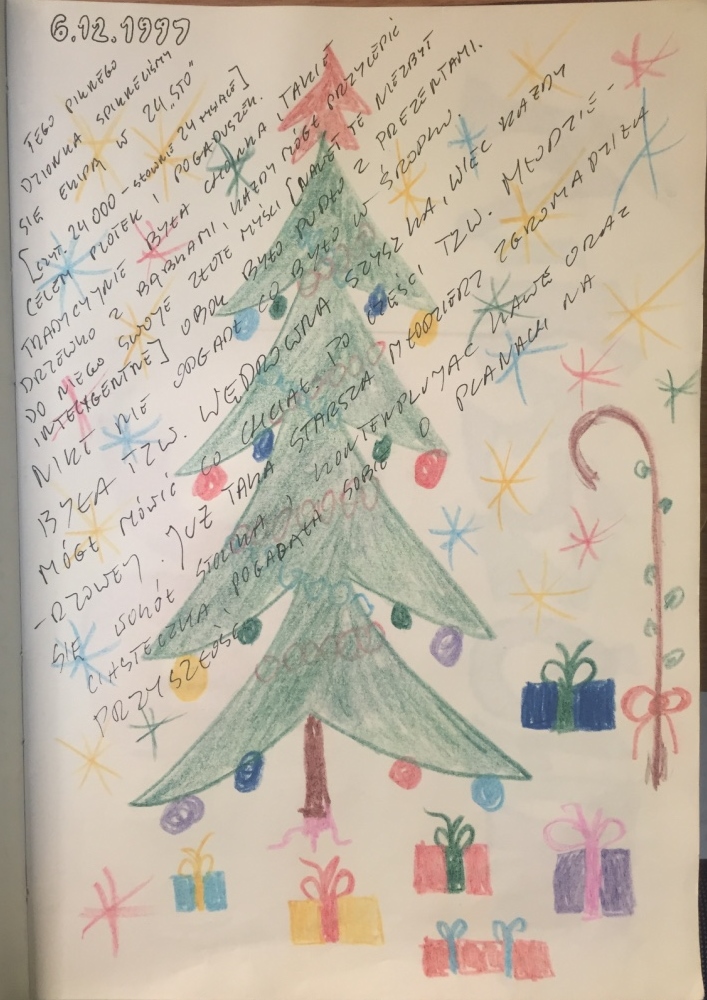 6.12.1997
TEGO PIĘKNEGO
DZIONKA SPIKNĘLIŚMY
SIĘ EKIPĄ W 24 „STO”
[CZYT. 24 000 - SŁOWNIE 24 TYSIĄCE]
CELEM PLOTEK I POGADUSZEK.
TRADYCYJNIE BYŁA CHOINKA, TAKIE
DRZEWKO Z BĄBKAMI, KAŻDY MÓGŁ PRZYLEPIĆ
DO NIEGO SWOJE ZŁOTE MYŚLI [NAWET TE NIEZBYT
INTELYGENTNE] OBOK BYŁO PUDŁO Z PREZENTAMI.
NIKT NIE ODGADŁ CO BYŁO W ŚRODKU.
BYŁA TZW. WĘDROWNA SZYSZKA, WIĘC KAŻDY
MÓGŁ MÓWIĆ CO CHCIAŁ. PO CZĘŚCI TZW. MŁODZIE-
-RZOWEJ. JUŻ TAKA STARSZA MŁODZIERZ ZGROMADZIŁA
SIĘ WOKÓŁ STOLIKA I KONTENPLUJĄC KAWĘ ORAZ
CIASTECZKA POGADAŁA SOBIE O PLANACH NA
PRZYSZŁOŚĆ